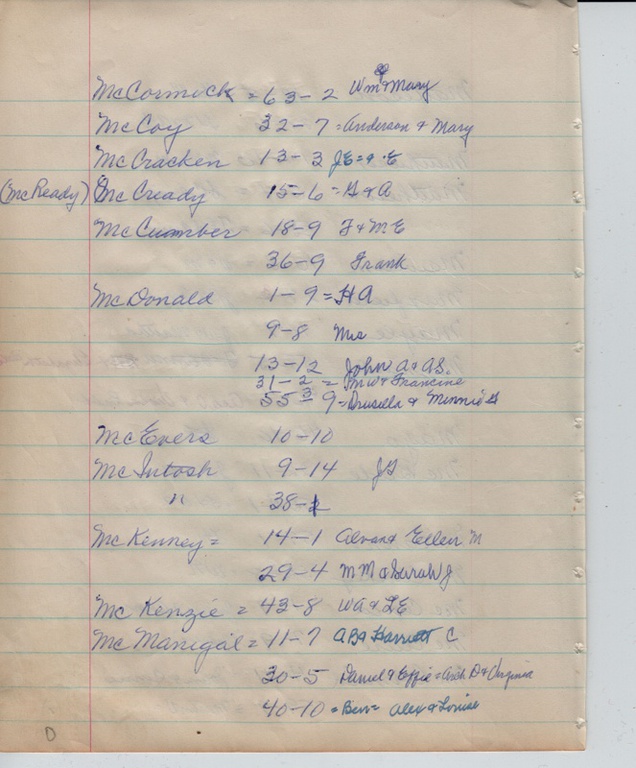 McCormick = 63-2 Wm & Mary
McCoy 32-7 = Anderson & Mary
McCracken 13-3 JE = & E
(McReady) McCready 15-6 = G & A
McCumber 18-9 F & M.E
36-9 Frank
McDonald 1-9 = HA
9-8 Mrs
13-12 John A & AS.
31-2 = & Francine
55-9 = Drusella & Minnie G
McEvers 10-10
McIntosh 9-14 JG
" 38-
McKenney = 14-1 Alvan & Ellen M
29-4 M M & Sarah J
McKenzie = 43-8 WA & LE
McManigal = 11-7 AB & Harriett C
30-5 Daniel & Effie = Arch D & Virginia
40-10 = Ben = Alex & Louise
D